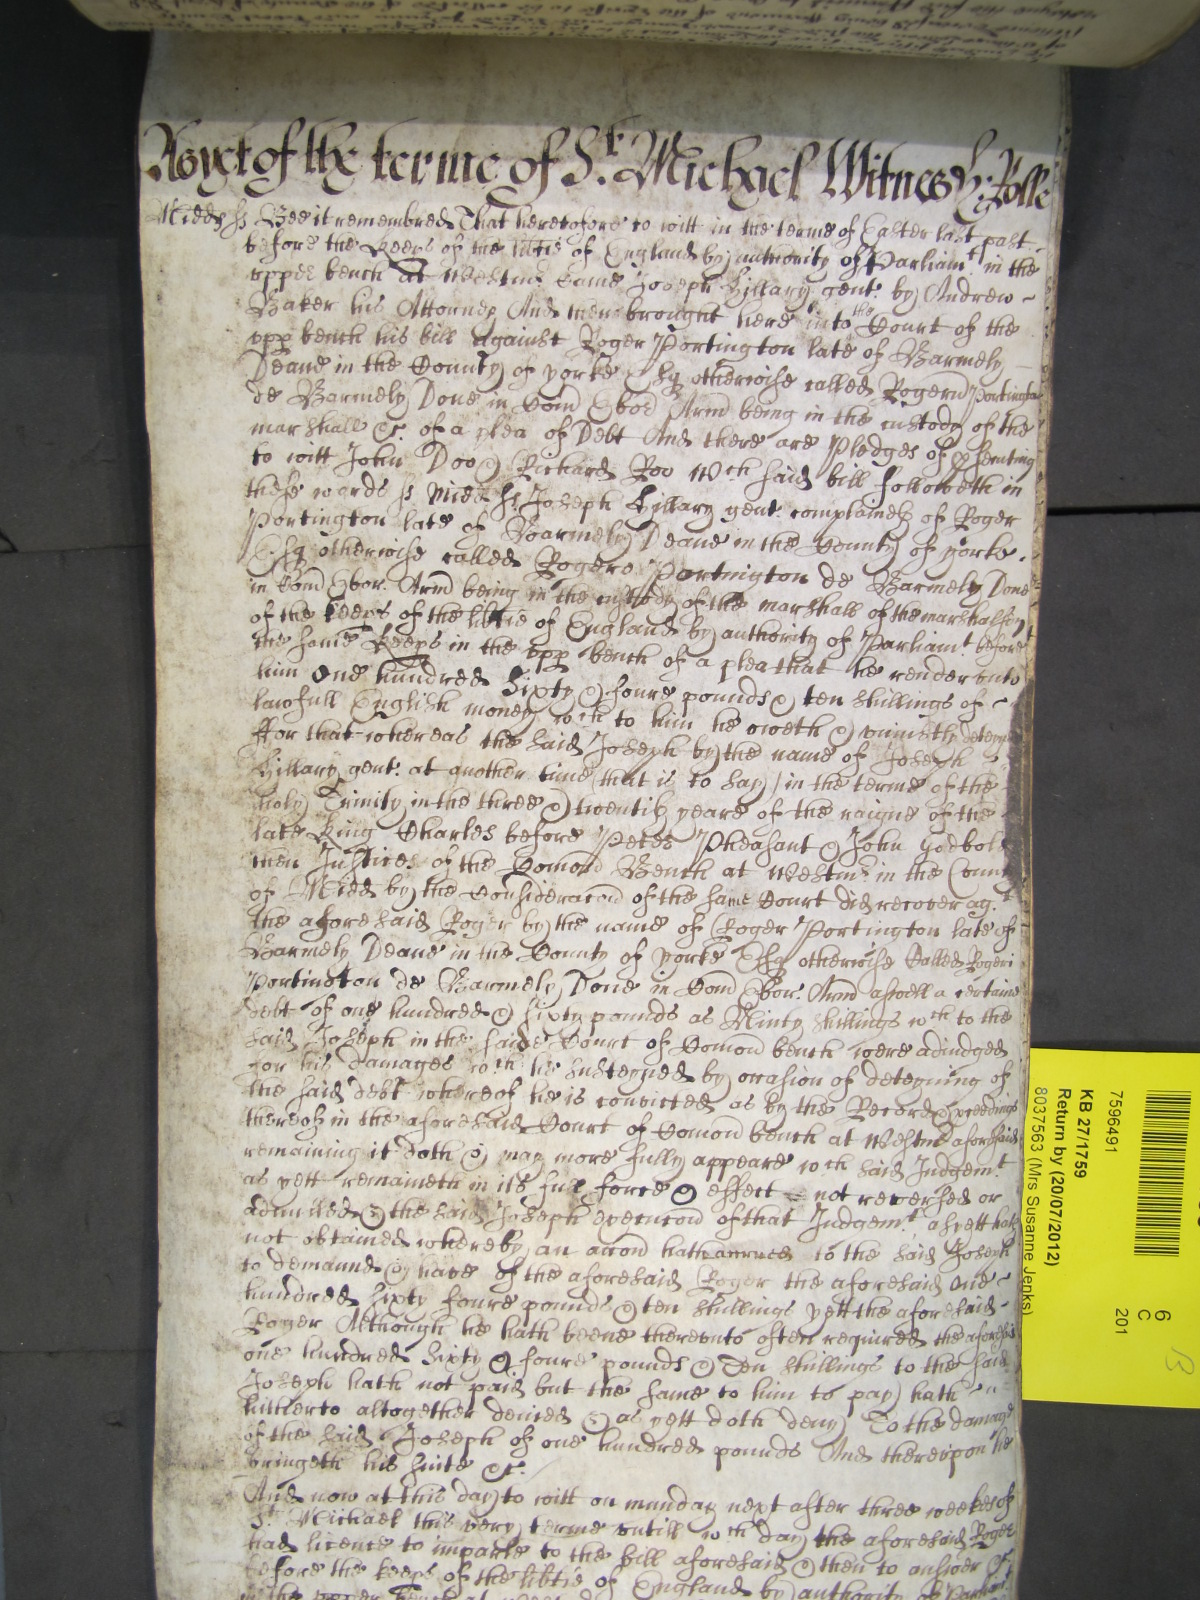 As yet of the terme of St. Michael Witnes H: Rolle
Midds ss Bee it remembred That heretofore to witt in the terme of Easter last past
before the Keeps of the libtie of England by authority of Parliamt in the
upper bench at Westmr Came Joseph Hillary gent: by Andrew
Baker his Attorney And then brought here into the Court of the
upp bench his bill against Roger Portington late of Barmely
Deane in the County of yorke Esq otherwise called Rogerū Portington
de Barmely Done in Com Ebor Armē being in the custody of the
marshall &c. of a plea of Debt And there are Pledges of psenting
to witt John Doo & Richard Roo wch said bill followeth in
these words ss Midd ss. Joseph Hillary gent: complaineth of Roger
Portington late of Barmely Deane in the County of yorke
Esq otherwise called Rogero Portington de Barmely Done
in Com Ebor. Armē being in the custody of the marshall of the marshalsey
of the keeps of the libtie of England by authority of Parliamt. before
the same Keeps in the upp bench of a plea that he render unto
him One hundred Sixty & foure pounds & ten shillings of
lawfull English money wch to him he oweth & uniustly
ffor that whereas the said Joseph by the name of Joseph
Hillary gent: at another time that is to say) in the terme of the
holy Trinity in the three & twentith yeare of the raigne of the
late King Charles before Peter Pheasant & John Godbolt
then Justices of the Comon Bench at Westmr: in the County
of Midd by the Consideracon of the same Court did recover agt.
the aforesaid Roger by the name of Roger Portington late of
Barmely Deane in the County of yorke Esq otherwise Called Rogeri
Portington de Barmely Done in Com Ebor. Armē aswell a certaine
debt of one hundred & sixty pounds as Ninty shillings wch to the
said Joseph in the said Court of Comon bench were adiudged
for his damages wch he susteyned by occasion of deteyning of
the said debt whereof he is convicted as by the Record & pceedings
thereof in the aforesaid Court of Comon bench at Westmr aforesaid
remaining it doth & may more fully appeare wch said Judgemt
as yett remaineth in its full force & effect not reversed or
adnulled & the said Joseph execucon of that Judgemt. as yett hath
not obtained whereby an accon hath accrued to the said Joseph
to demannd & have of the aforesaid Roger the aforesaid one
hundred sixty foure pounds & ten shillings yett the aforesaid
Roger Although he hath beene thereunto often required the aforesaid
one hundred sixty & foure pounds & Ten shillings to the said
Joseph hath not paid but the same to him to pay hath
hitherto altogether denied & as yett doth deny To the damage
of the said Joseph of one hundred pounds And thereupon he
bringeth his suite &c.
And now at this day to witt on munday next after three weekes of
St. Michael this very terme untill wch day the aforesaid Roger
had licence to imparle to the bill aforesaid & then to answer &c.
before the keeps of the libtie of England by authority of Parliamt
in the upper bench at
7596491
KB 27/1759
Return by (20/07/2012)
8037563 (Mrs Susanne Jenks)
6
C
201